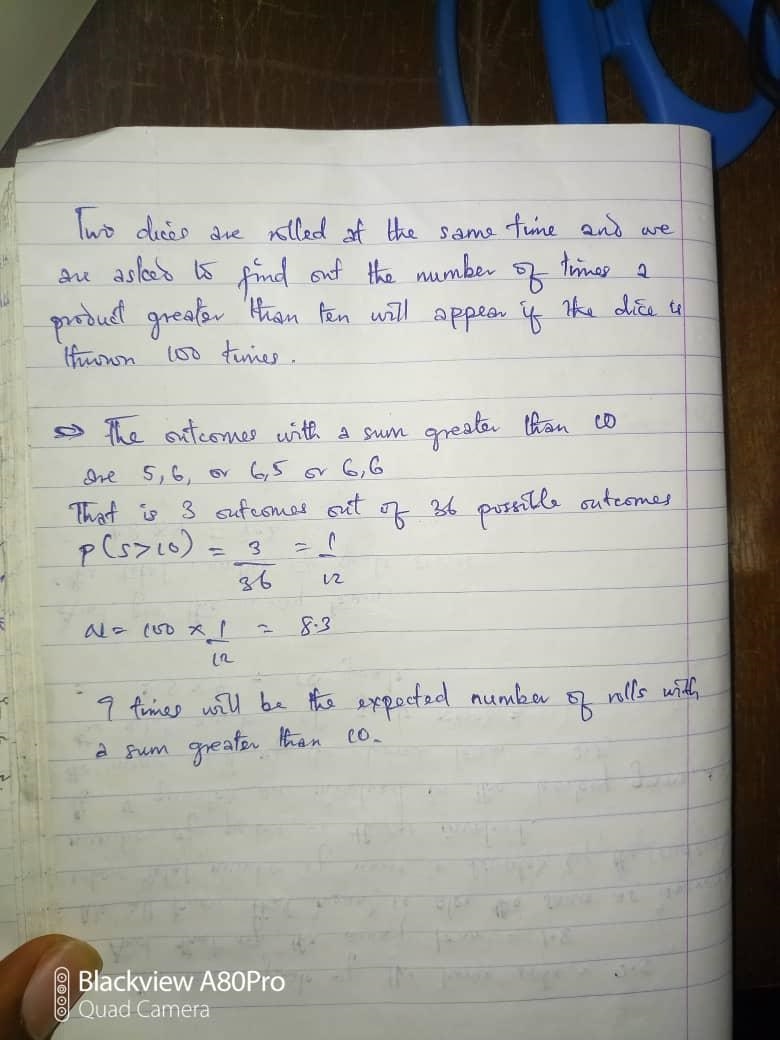 Two dices are rolled at the same time and we
are asked to find out the number of times a
product greater than ten will appear if the dice is
thrown 100 times.
⇒ The outcomes with a sum greater than 10
are 5,6, or 6,5 or 6,6
That is 3 outcomes out of 36 possible outcomes
P(S>10) = 3/36 = 1/12
N = 100 × 1/12 = 8.3
9 times will be the expected number of rolls with
a sum greater than 10.
Blackview A80Pro
Quad Camera